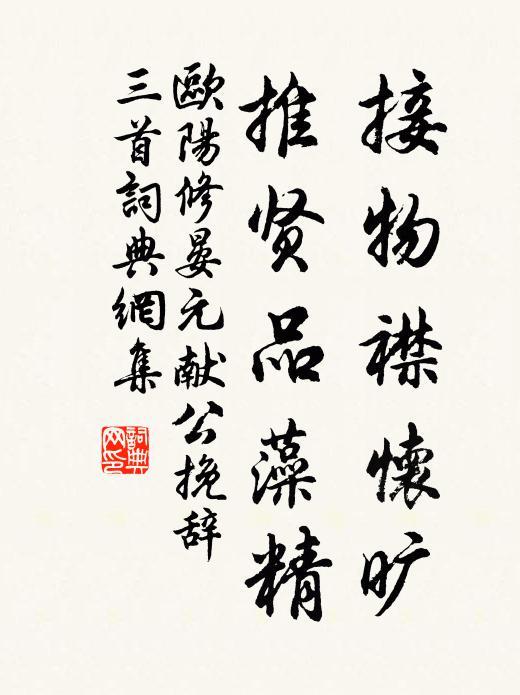 接物襟懷旷
推贤品藻精
歐陽修晏元献公挽辞
三首詞典網集
詞典网印